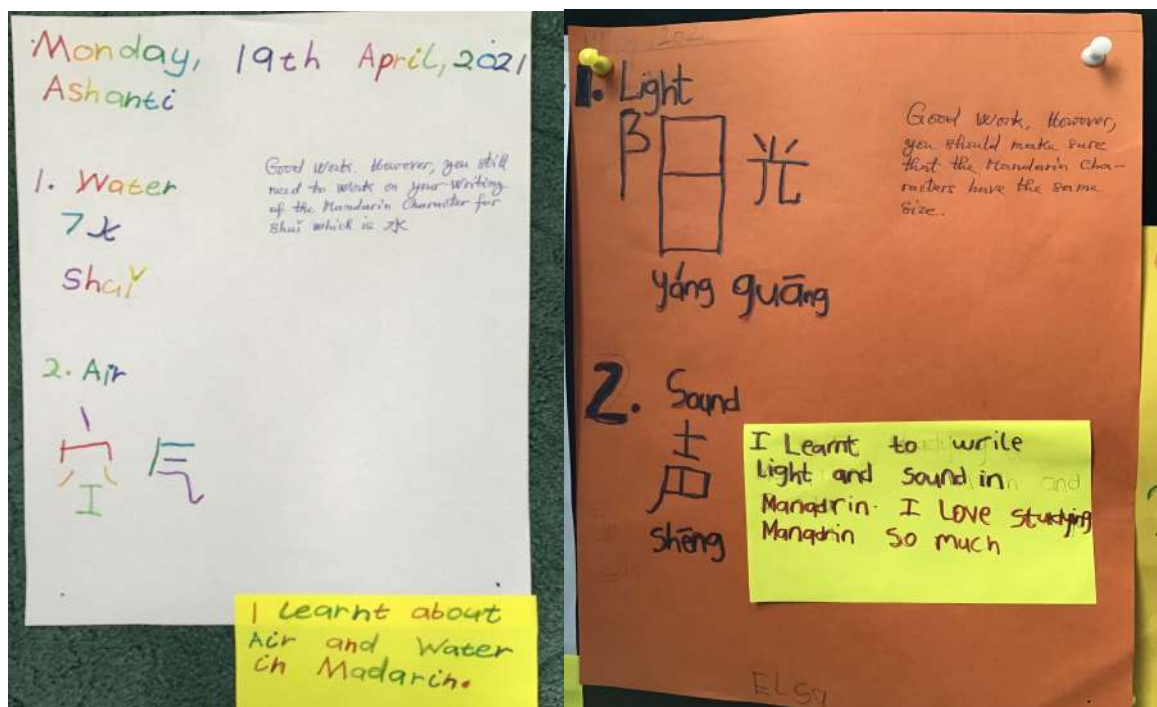 Monday, 19th April, 2021
Ashanti
1. Water
水
Shuǐ
2. Air
空气
Good work. However, you still
need to work on your writing
of the Mandarin Character for
Shuǐ which is 水
I Learnt about
Air and Water
in Madarin.
1. Light
阳光
yáng guāng
Good work. However,
you should make sure
that the Mandarin Cha-
racters have the same
size.
2. Sound
声
shēng
I Learnt to write
Light and Sound in
Manadrin. I Love studying
Manadrin so much
ELSA